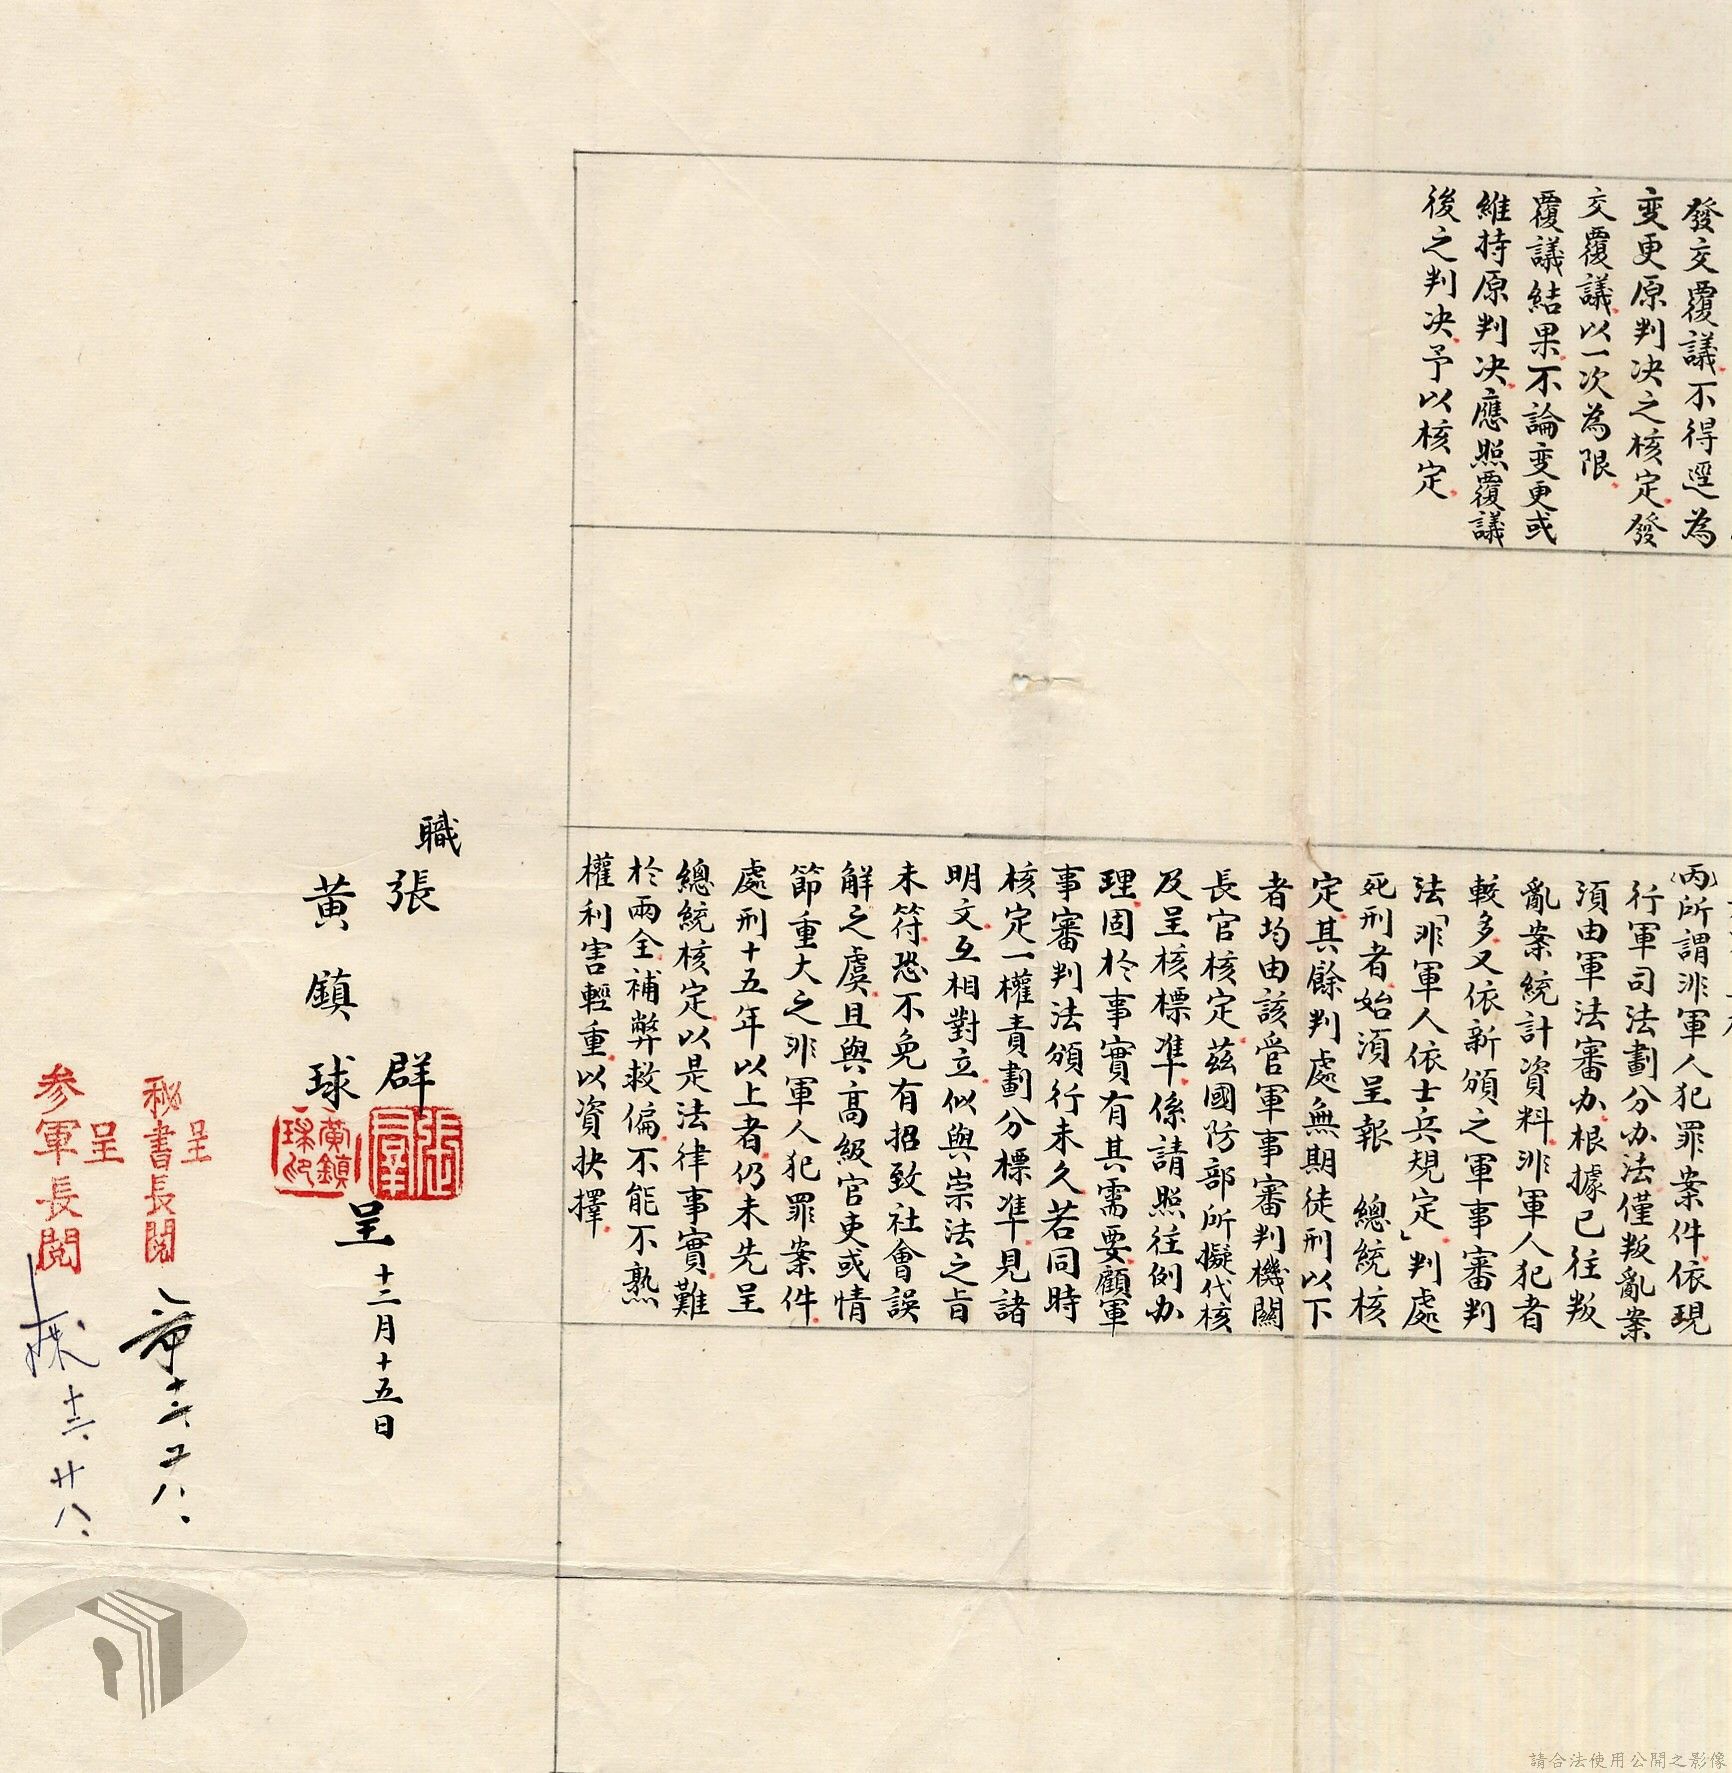 發交覆議不得逕為
变更原判决之核定發
交覆議以一次為限
覆議結果不論变更或
維持原判决應照覆議
後之判决予以核定
(丙)所謂非軍人犯罪案件依現
行軍司法劃分办法僅叛亂案
須由軍法審办根據已往叛
亂案統計資料非軍人犯者
較多又依新頒之軍事審判
法「非軍人依士兵規定」判處
死刑者始須呈報 總統核
定其餘判處無期徒刑以下
者均由該管軍事審判機關
長官核定茲國防部所擬代核
及呈核標準係請照往例办
理固於事實有其需要顧軍
事審判法頒行未久若同時
核定一權責劃分標準見諸
明文互相對立似與崇法之旨
未符恐不免有招致社會誤
解之虞且與高級官吏或情
節重大之非軍人犯罪案件
處刑十五年以上者仍未先呈
總統核定以是法律事實難
於兩全補弊救偏不能不熟
權利害輕重以資抉擇
職
張群
黃鎮球
呈
十二月十五日
呈
秘書長閱
十二廿八
呈
参軍長閱
十二廿八
請合法使用公開之影像